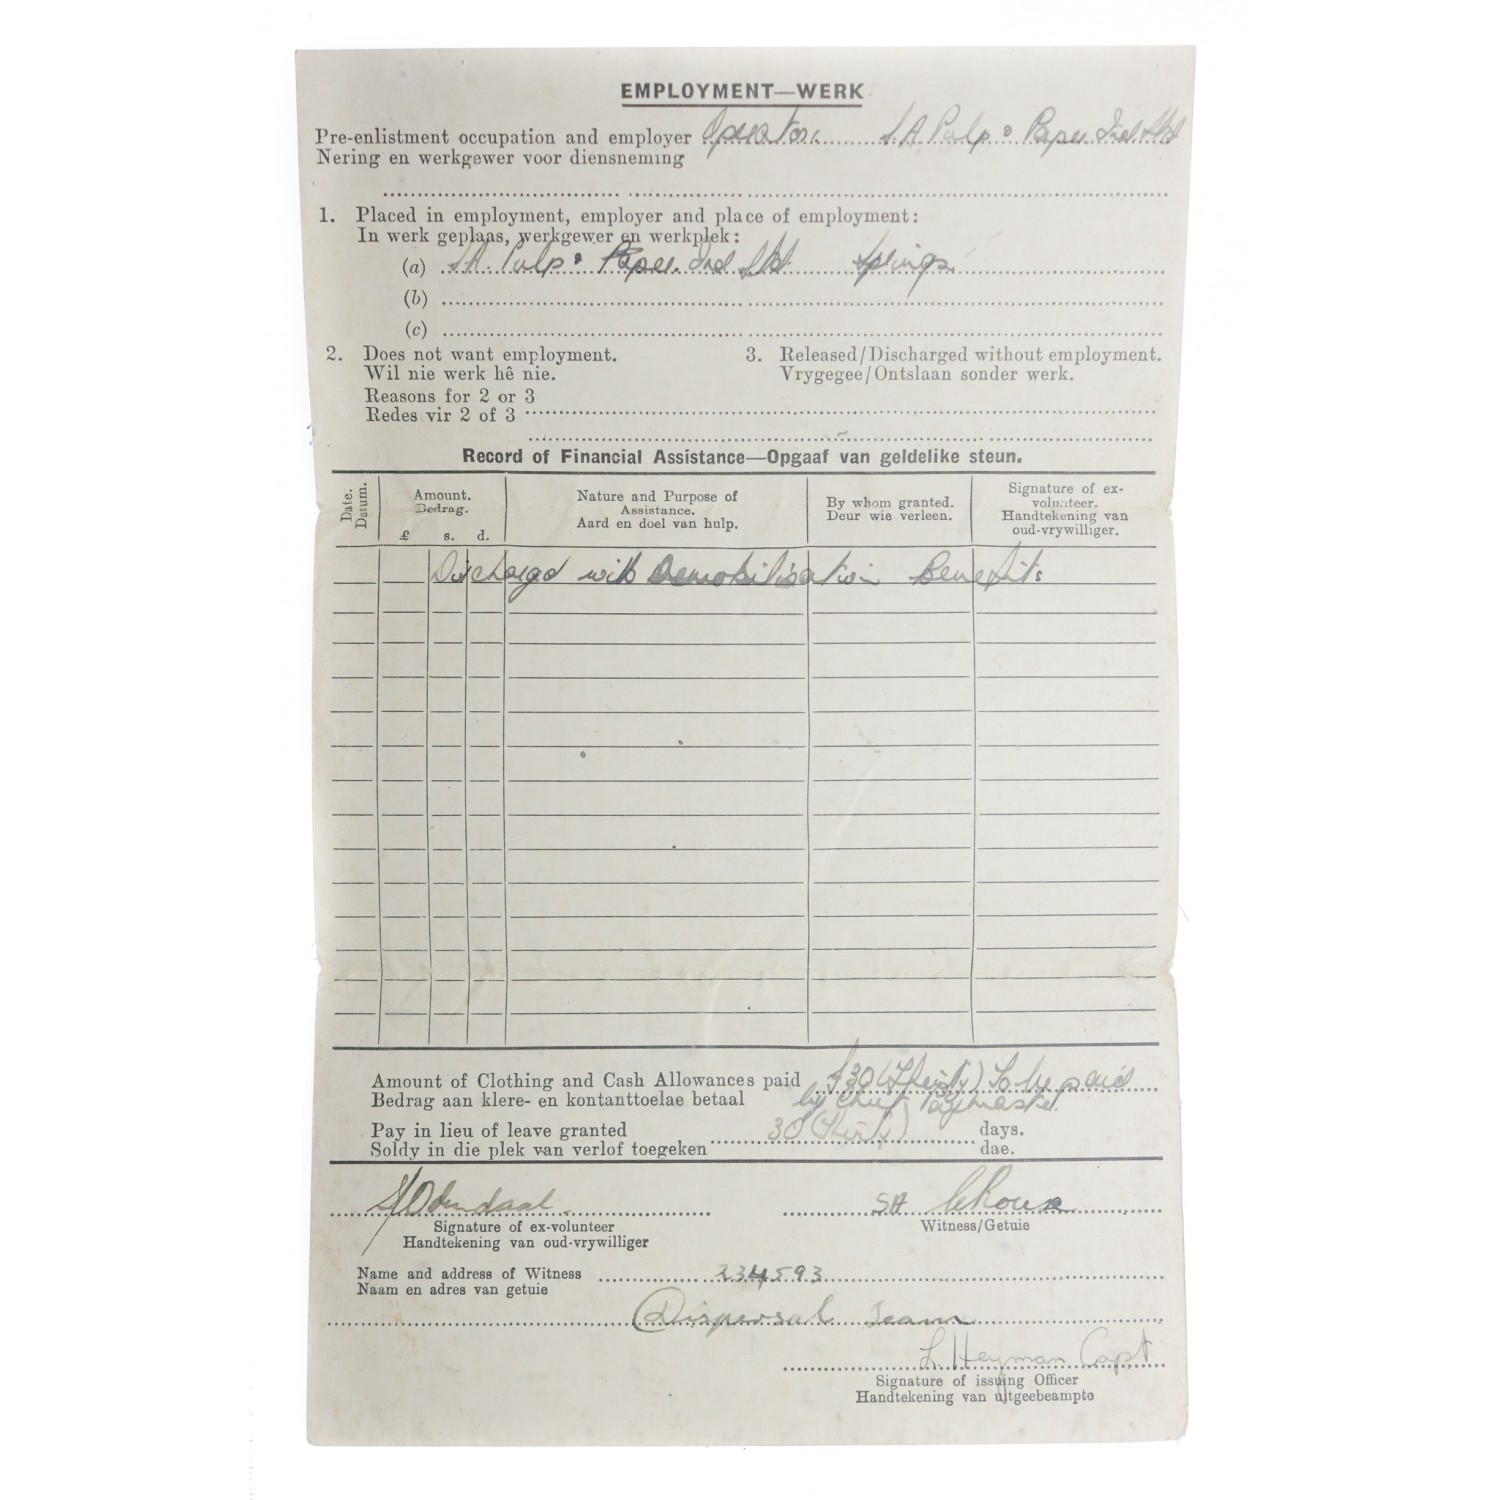 EMPLOYMENT—WERK
Pre-enlistment occupation and employer Operator. S.A. Pulp & Paper Ind Ltd
Nering en werkgewer voor diensneming
1. Placed in employment, employer and place of employment:
In werk geplaas, werkgewer en werkplek:
(a) S.A. Pulp & Paper Ind Ltd Springs
(b)
(c)
2. Does not want employment.
Wil nie werk hê nie.
3. Released/Discharged without employment.
Vrygegee/Ontslaan sonder werk.
Reasons for 2 or 3
Redes vir 2 of 3
Record of Financial Assistance—Opgaaf van geldelike steun.
Date.
Datum.
Amount.
Bedrag.
£ s. d.
Nature and Purpose of
Assistance.
Aard en doel van hulp.
By whom granted.
Deur wie verleen.
Signature of ex-
volunteer.
Handtekening van
oud-vrywilliger.
Discharged with Demobilisation Benefits
Amount of Clothing and Cash Allowances paid £30 (Thirty) To be paid
Bedrag aan klere- en kontanttoelae betaal by Chief Paymaster
Pay in lieu of leave granted 30 (Thirty) days.
Soldy in die plek van verlof toegeken dae.
Odendaal SA le Roux
Signature of ex-volunteer
Handtekening van oud-vrywilliger
Witness/Getuie
Name and address of Witness 234593
Naam en adres van getuie
Dispersal Team
L. Heyman Capt
Signature of issuing Officer
Handtekening van uitgeebeampte